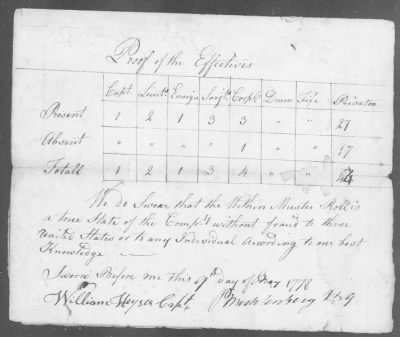 Proof of the Effectives
Capt. Lieuts Ensign Serjts Corpls Drum Fife Privates
Present 1 2 1 3 3 " " 27
Absent " " " " 1 " " 17
Totall 1 2 1 3 4 " " 44
We do Swear that the Within Muster Roll is
a true State of the Compy without fraud to these
United States or to any Individual According to our best
Knowledge
Sworn Before me this 9th day of May 1778
William Heyser Capt. P Muhlenberg B G